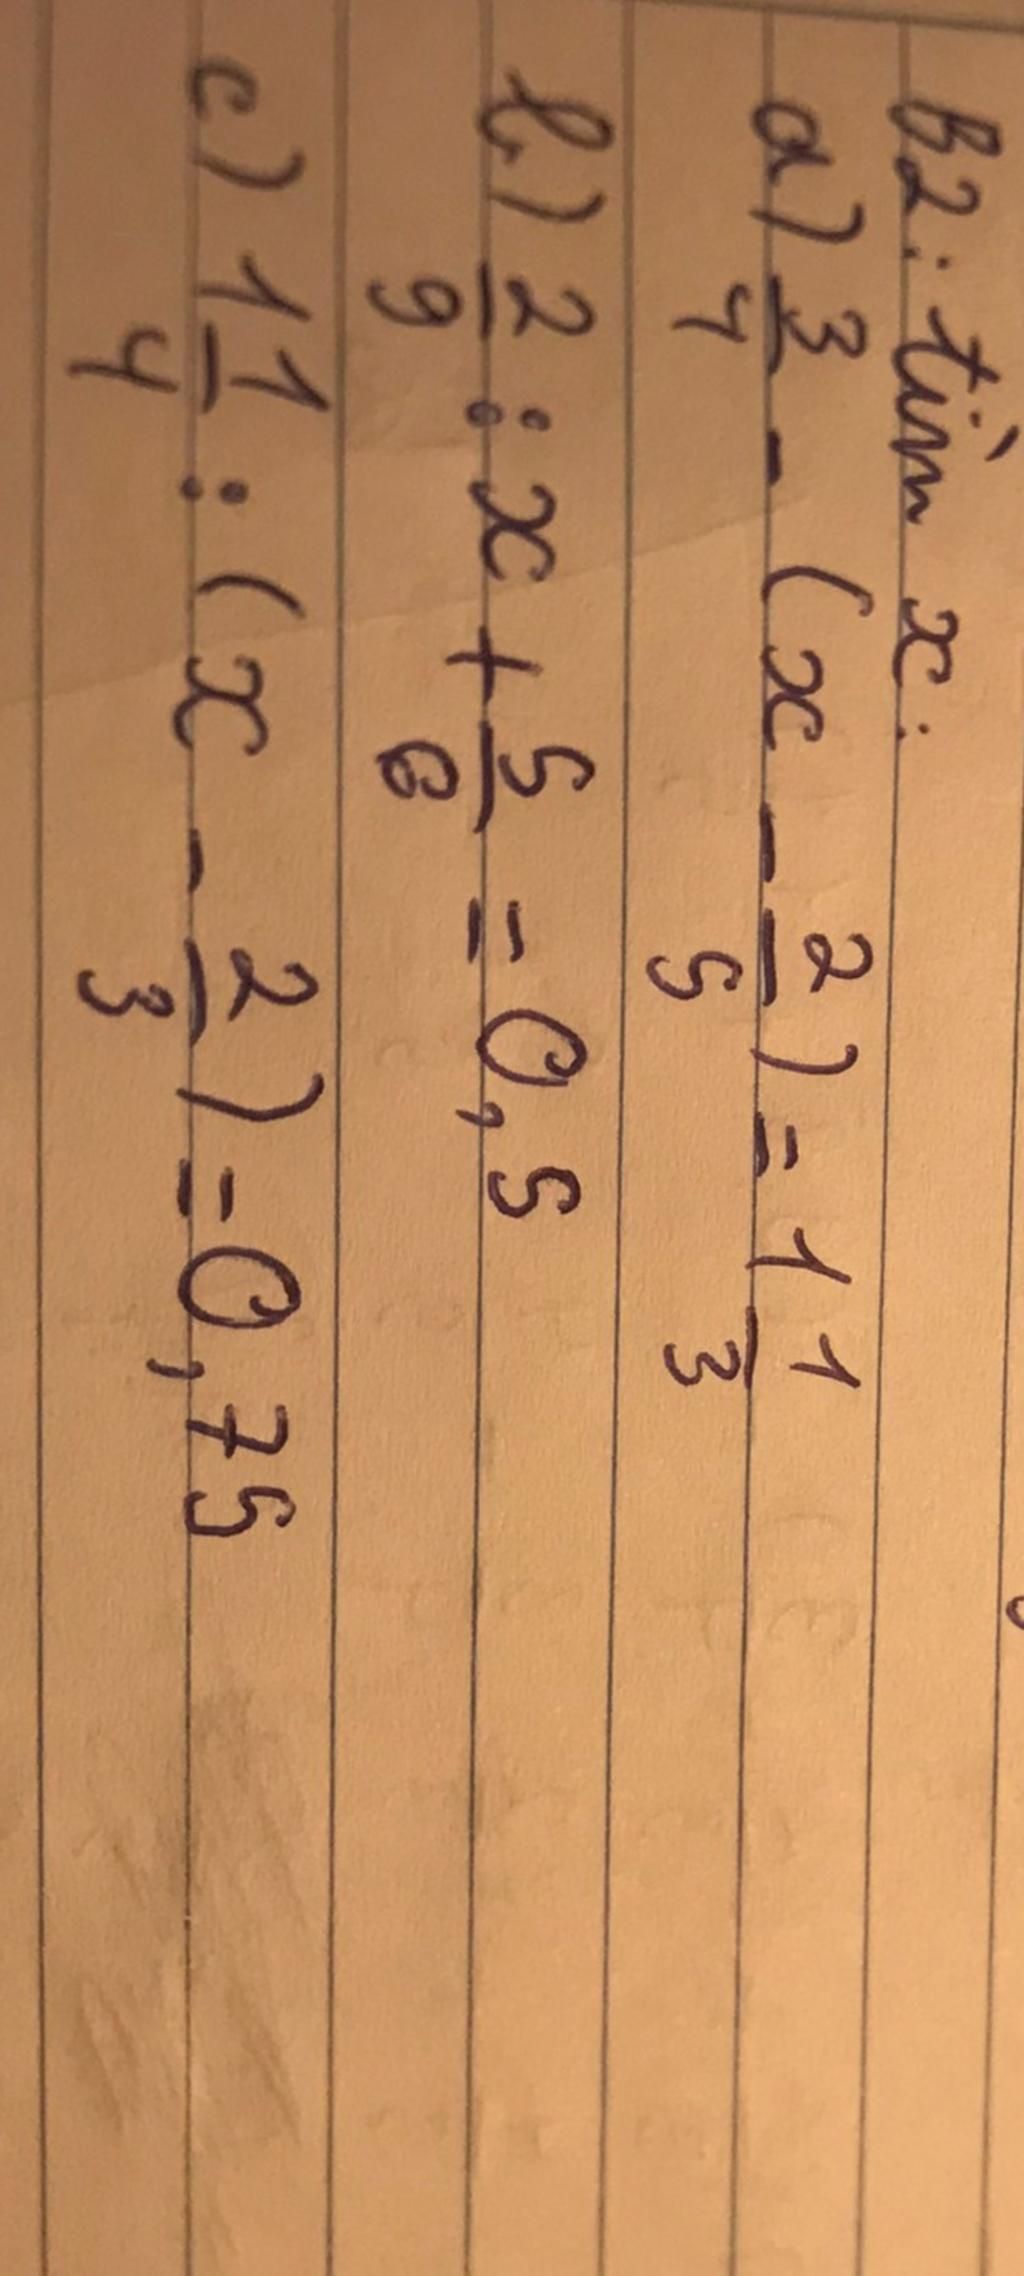 B2: tìm x:
a) 3/4 - (x - 2/5) = 1 1/3
b) 2/9 : x + 5/6 = 0,5
c) 1 1/4 : (x - 2/3) = 0,75